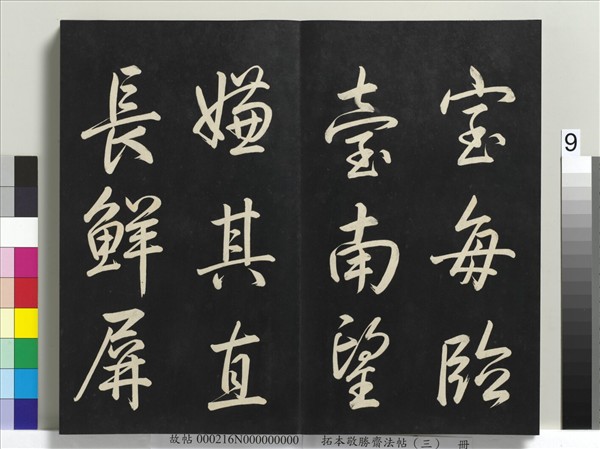 室每臨
臺南望
嫌其直
長鮮屏
9
故帖 000216N000000000 拓本敬勝齋法帖(三) 冊